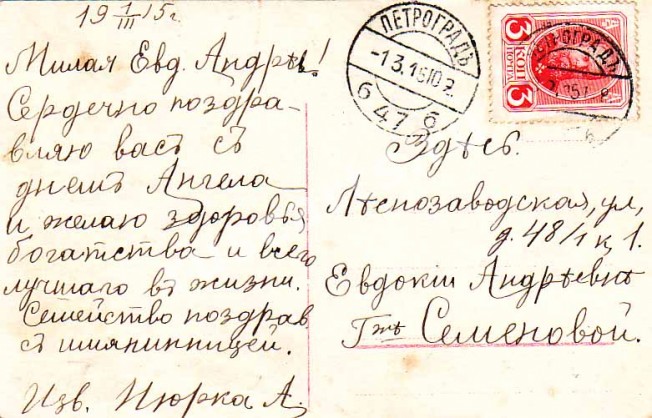 19 1/III 15 г.
Милая Евд. Андрѣ.!
Сердечно поздра-
вляю васъ съ
днемъ Ангела
и желаю здоровья
богатства и всего
лучшаго въ жизни.
Семейство поздрав.
съ имянинницей.
Изв. Нюрка А.
ПЕТРОГРАДЪ
-1.3.15
6 47 6
3 КОП 3
Здѣсь.
Лѣснозаводская, ул,
д. 48/1 к 1.
Евдокіи Андрѣевнѣ
Гжѣ Семеновой.